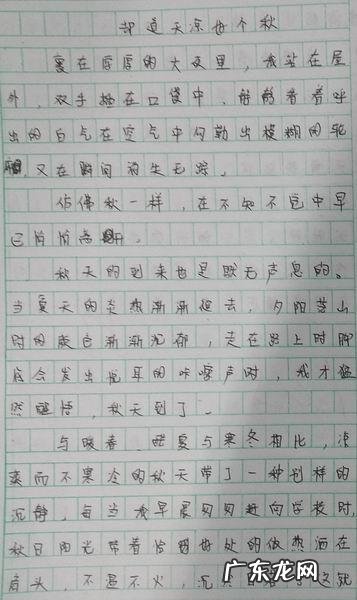 却道天凉好个秋
裹在厚厚的大衣里，我站在屋
外，双手插在口袋中，静静看着呼
出的白气在空气中勾勒出模糊的轮
又在瞬间消失无踪。
仿佛秋一样，在不知不觉中早
已悄悄离开。
秋天的到来也是既无声息的。
当夏天的炎热渐渐退去，夕阳芝山
时的颜色渐渐沉郁，走在路上时脚
底会发出悦耳的咔嚓声时，我才猛
然醒悟，秋天到了。
与暖春、旺夏与寒冬相比，凉
爽而不寒冷的秋天带了一种别样的
沉静，每当我早晨匆匆赶向学校时，
秋日阳光带着恰到好处的微热洒在
肩头，不温不火，沉
广东龙网
www.gdlongw.com